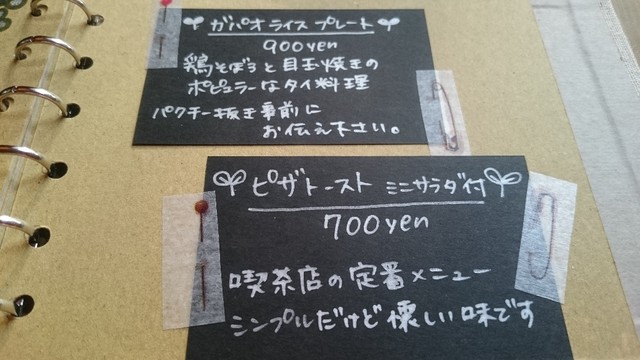 ガパオライス プレート
900yen
鶏そぼろと目玉焼きの
ポピュラーなタイ料理
パクチー抜き事前に
お伝え下さい。
ピザトースト ミニサラダ付
700yen
喫茶店の定番メニュー
シンプルだけど懐しい味です